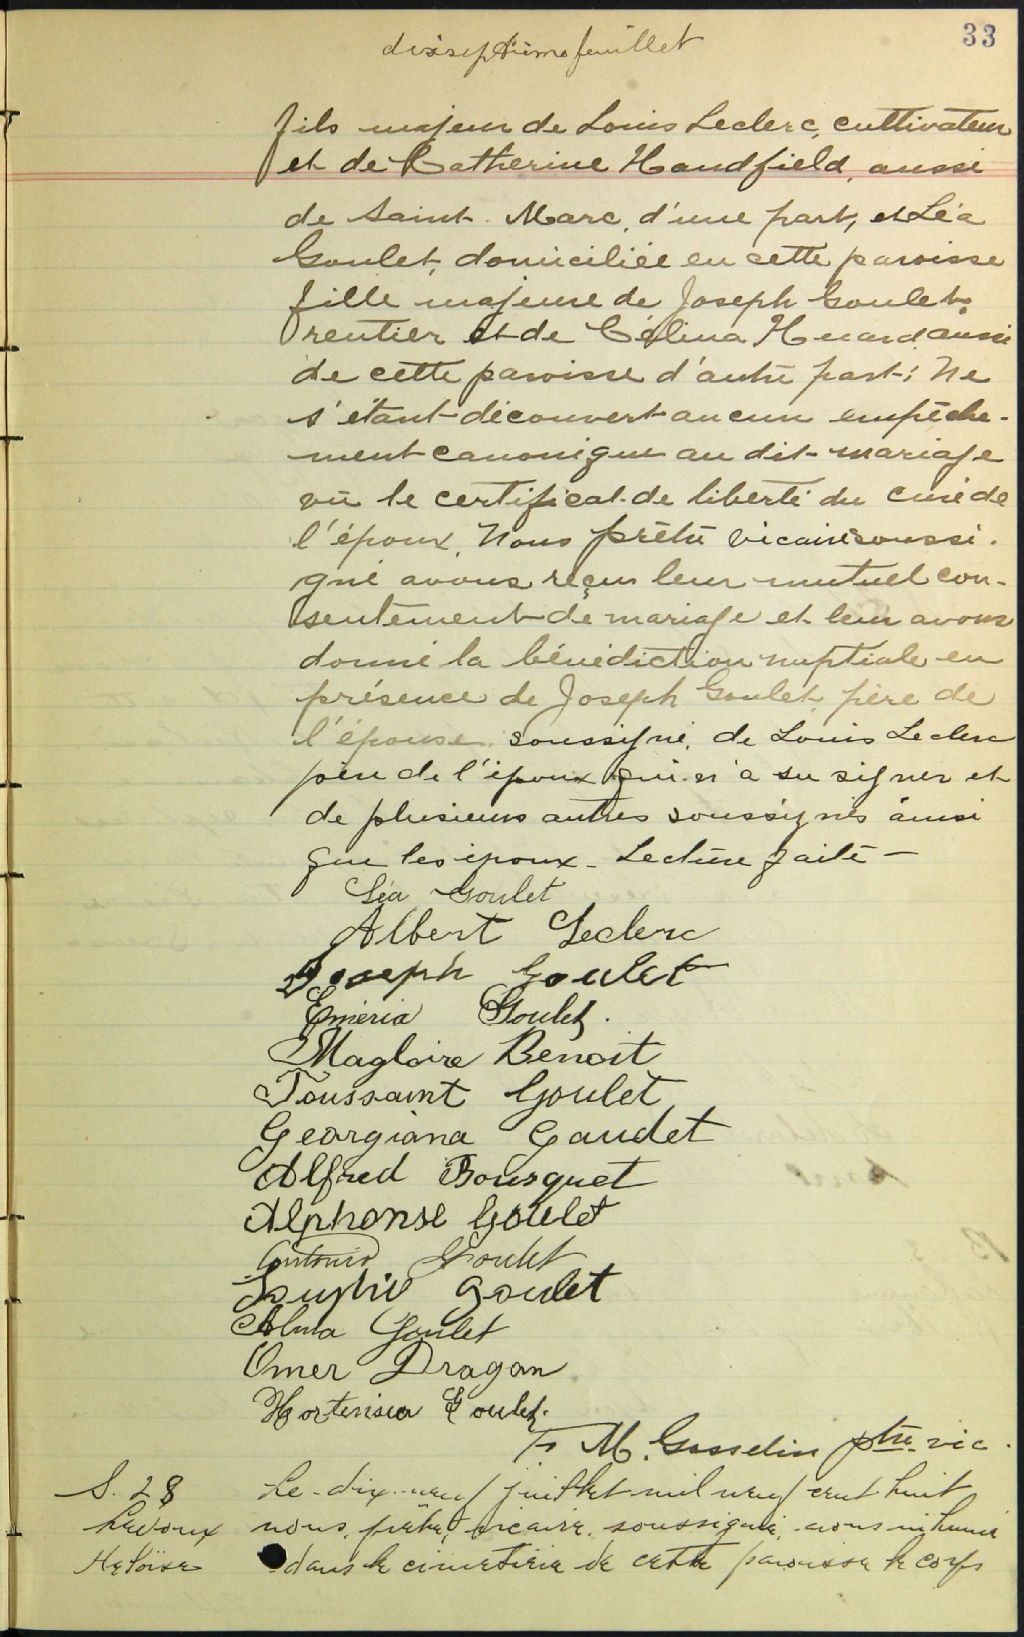 33
dixseptième feuillet
fils majeur de Louis Leclerc, cultivateur
et de Catherine Handfield, aussi
de Saint Marc, d'une part, et Léa
Goulet, domiciliée en cette paroisse
fille majeure de Joseph Goulet
rentier et de Célina Huard aussi
de cette paroisse d'autre part; Ne
s'étant découvert aucun empêche-
ment canonique au dit mariage
vû le certificat de liberté du curé de
l'époux, Nous prêtre vicaire soussi-
gné avons reçu leur mutuel con-
sentement de mariage et leur avons
donné la bénédiction nuptiale en
présence de Joseph Goulet, père de
l'épouse soussigné, de Louis Leclerc
père de l'époux qui n'a su signer et
de plusieurs autres soussignés ainsi
que les époux - Lecture faite -
Léa Goulet
Albert Leclerc
Joseph Goulet
Emèria Goulet.
Magloire Benoit
Toussaint Goulet
Georgiana Gaudet
Alfred Bousquet
Alphonse Goulet
Antonio Goulet
Goulet
Alma Goulet
Omer Dragon
Hortensia Goulet.
F. M. Gosselin ptre vic.
S. 28
Ledoux
Heloïse
Le dix-neuf juillet mil neuf cent huit
nous, prêtre, vicaire, soussigné, avons inhumé
dans le cimetière de cette paroisse le corps